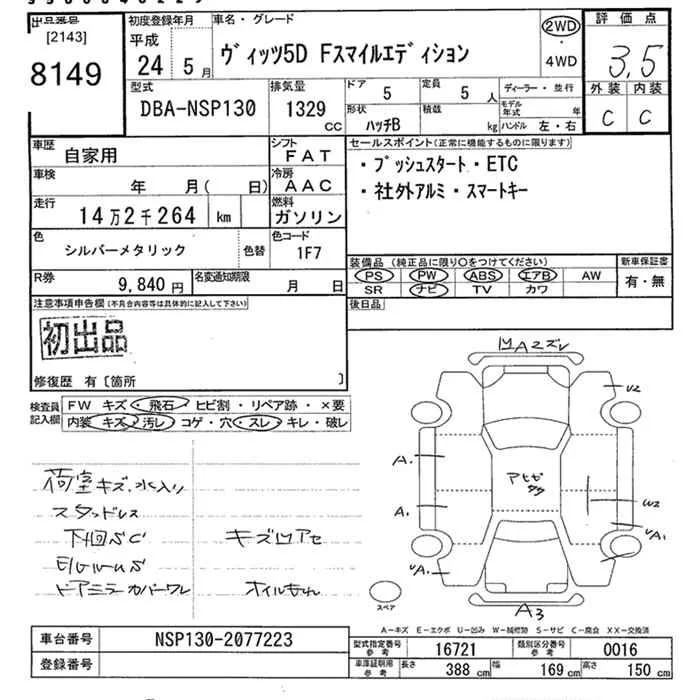 出品番号
[2143]
8149
初度登録年月
平成
24 5月
車名・グレード
ヴィッツ5D Fスマイルエディション
2WD
・
4WD
評価点
3.5
外装 内装
C C
型式
DBA-NSP130
排気量
1329
CC
ドア 5
定員 5人
形状 ハッチB
積載 kg
ディーラー・並行
モデル年式 年
ハンドル 左・右
車歴 自家用
シフト FAT
車検 年 月( 日)
冷房 AAC
走行 14万2千264 km
燃料 ガソリン
色 シルバーメタリック 色替
色コード 1F7
R券 9,840円
名変通知期限 月 日
セールスポイント(正常に機能するものに限ります)
・プッシュスタート・ETC
・社外アルミ・スマートキー
装備品(純正品に限り○をつけてください)
PS PW ABS エアB AW
SR ナビ TV カワ
新車保証書
有・無
後日品
注意事項申告欄(不具合内容等は具体的に記入して下さい)
初出品
修復歴 有〔箇所 〕
検査員記入欄
FW キズ・飛石・ヒビ割・リペア跡・×要
内装 キズ・汚レ・コゲ・穴・スレ・キレ・破レ
荷室キズ、水入り
スタッドレス
下回S C
キズ凹アセ
ドアミラーカバーワレ
オイルもれ
凹A2ズレ
U2
A1
A1
W2
UA1
UA1
A3
スペア
A－キズ E－エクボ U－凹み W－補修跡 S－サビ C－腐食 XX－交換済
車台番号 NSP130-2077223
登録番号
型式指定番号参考 16721
類別区分番号参考 0016
車庫証明用参考 長さ 388cm 幅 169cm 高さ 150cm